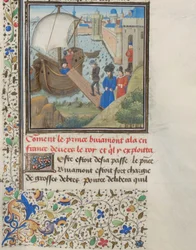 Coment le prince buiamont ala en
france deuers le roy et ql y exploita
Leste estoit desia passe le pnce
Buiamont estoit fort charge
de grosses debtes Pource delibera quil